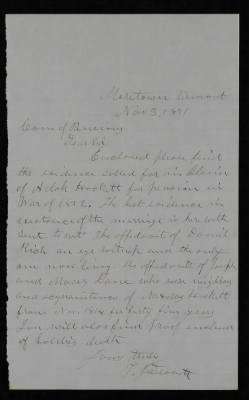 Moretown Vermont
Nov 3, 1871
Com of Pensions
Dear Sir
Enclosed please find
the evidence called for in claim
of Adah Heaton for pension in
War of 1812. The best evidence in
existence of the marriage is herewith
sent to wit The affidavit of Daniel
Rich an eye witness and the only
one now living. The affidavits of Joseph
and Moses Lane who were neighbors
and acquaintances of
from Nov. 1814 for forty five years
You will also find proof enclosed
of Soldiers death
Yours truly